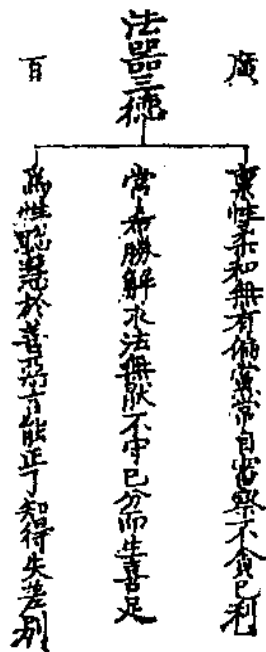 廣百
法器三種
稟性柔和無有偏黨常自審察不貪己利
常希勝解求法無厭不守己分而生喜足
為性聰慧於善惡言能正了知得失差別